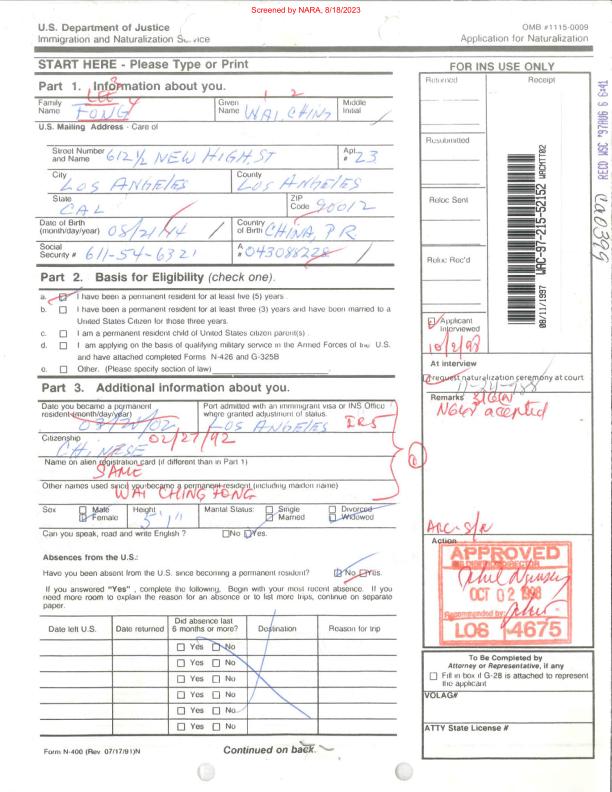 Screened by NARA, 8/18/2023
U.S. Department of Justice
Immigration and Naturalization Service
OMB #1115-0009
Application for Naturalization
START HERE - Please Type or Print
Part 1. Information about you.
LEE 3
Family Name FONG 4
Given Name WAI, CHING 1 2
Middle Initial
U.S. Mailing Address - Care of
Street Number and Name 612 1/2 NEW HIGH, ST
Apt. # 23
City LOS ANGELES
County LOS ANGELES
State CAL
ZIP Code 90012
Date of Birth (month/day/year) 08/21/44
Country of Birth CHINA, P R
Social Security # 611-54-6321
A # 043088228
Part 2. Basis for Eligibility (check one).
a. I have been a permanent resident for at least five (5) years
b. I have been a permanent resident for at least three (3) years and have been married to a
United States Citizen for those three years.
c. I am a permanent resident child of United States citizen parent(s)
d. I am applying on the basis of qualifying military service in the Armed Forces of the U.S.
and have attached completed Forms N-426 and G-325B
e. Other. (Please specify section of law)
Part 3. Additional information about you.
Date you became a permanent resident (month/day/year)
02/27/92
Port admitted with an immigrant visa or INS Office where granted adjustment of status.
LOS ANGELES IR5
Citizenship
CHINESE
Name on alien registration card (if different than in Part 1)
SAME
Other names used since you became a permanent resident (including maiden name)
WAI CHING FONG
Sex Male Female
Height 5'1"
Marital Status: Single Married Divorced Widowed
Can you speak, read and write English ? No Yes.
Absences from the U.S.:
Have you been absent from the U.S. since becoming a permanent resident? No Yes.
If you answered "Yes" , complete the following. Begin with your most recent absence. If you
need more room to explain the reason for an absence or to list more trips, continue on separate
paper.
Date left U.S.
Date returned
Did absence last 6 months or more?
Destination
Reason for trip
Yes No
Yes No
Yes No
Yes No
Yes No
Yes No
Form N-400 (Rev 07/17/91)N
Continued on back.
FOR INS USE ONLY
Returned
Receipt
Resubmitted
Reloc Sent
Reloc Rec'd
08/11/1997 WAC-97-215-52152 WACMTT02
RECD WSC '97AUG 6 6:41
Applicant Interviewed
10/2/98
At interview
request naturalization ceremony at court
Remarks
SIGN
accepted
Action
APPROVED
DISTRICT DIRECTOR
OCT 02 1998
Recommended by:
LOS 4675
To Be Completed by
Attorney or Representative, if any
Fill in box if G-28 is attached to represent
the applicant
VOLAG#
ATTY State License #